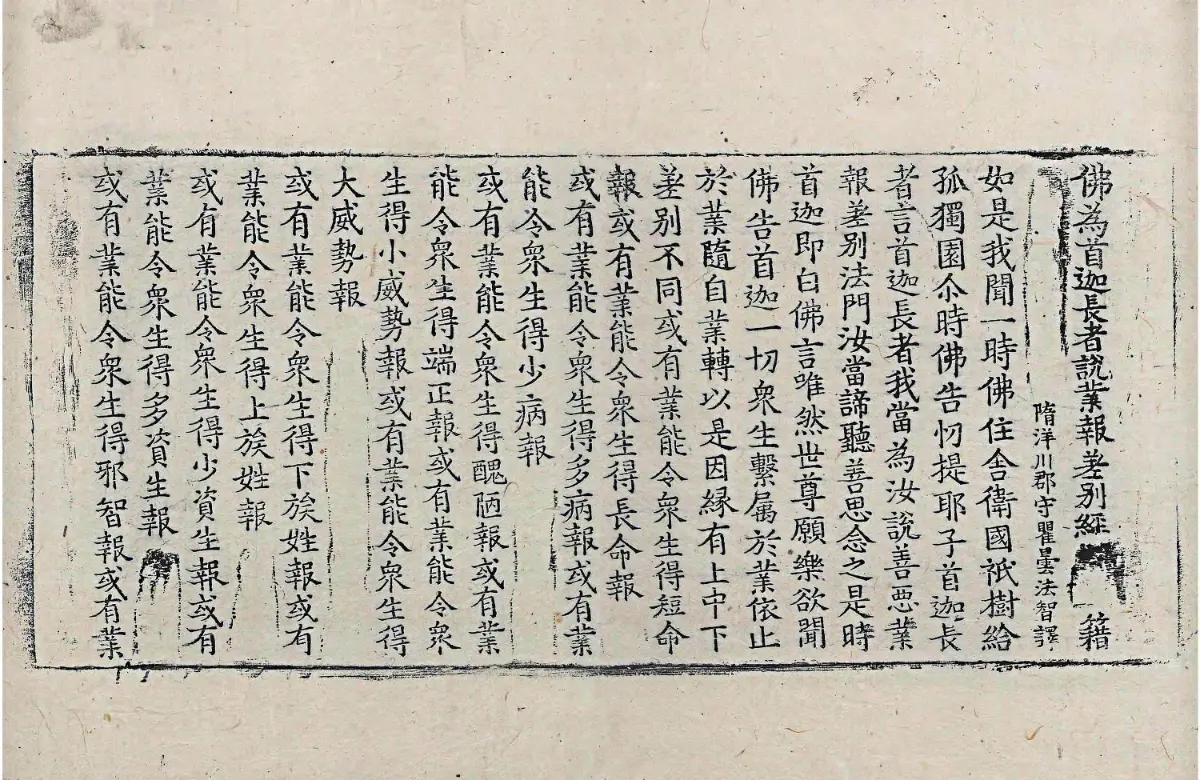 佛為首迦長者說業報差別經 籍
隋洋川郡守瞿曇法智譯
如是我聞一時佛住舍衛國祇樹給
孤獨園尒時佛告忉提耶子首迦長
者言首迦長者我當為汝說善惡業
報差別法門汝當諦聽善思念之是時
首迦即白佛言唯然世尊願樂欲聞
佛告首迦一切衆生繫属於業依止
於業隨自業轉以是因縁有上中下
差別不同或有業能令衆生得短命
報或有業能令衆生得長命報
或有業能令衆生得多病報或有業
能令衆生得少病報
或有業能令衆生得醜陋報或有業
能令衆生得端正報或有業能令衆
生得小威勢報或有業能令衆生得
大威勢報
或有業能令衆生得下族姓報或有
業能令衆生得上族姓報
或有業能令衆生得少資生報或有
業能令衆生得多資生報
或有業能令衆生得邪智報或有業